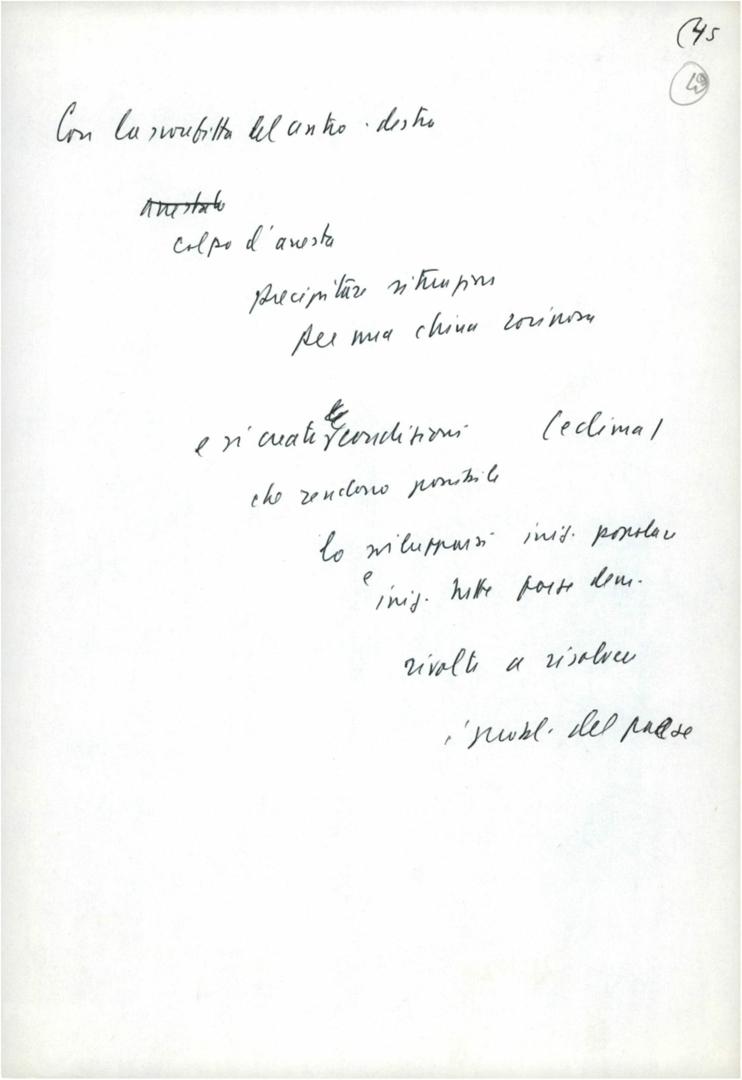 (45
Con la sconfitta del centro-destro
arrestato
colpo d'arresto
precipitare situazione
per una china rovinosa
e si create le condizioni (e clima)
che rendono possibile
lo svilupparsi iniz. popolare
e iniz. tutte forze dem.
rivolte a risolvere
i probl. del paese